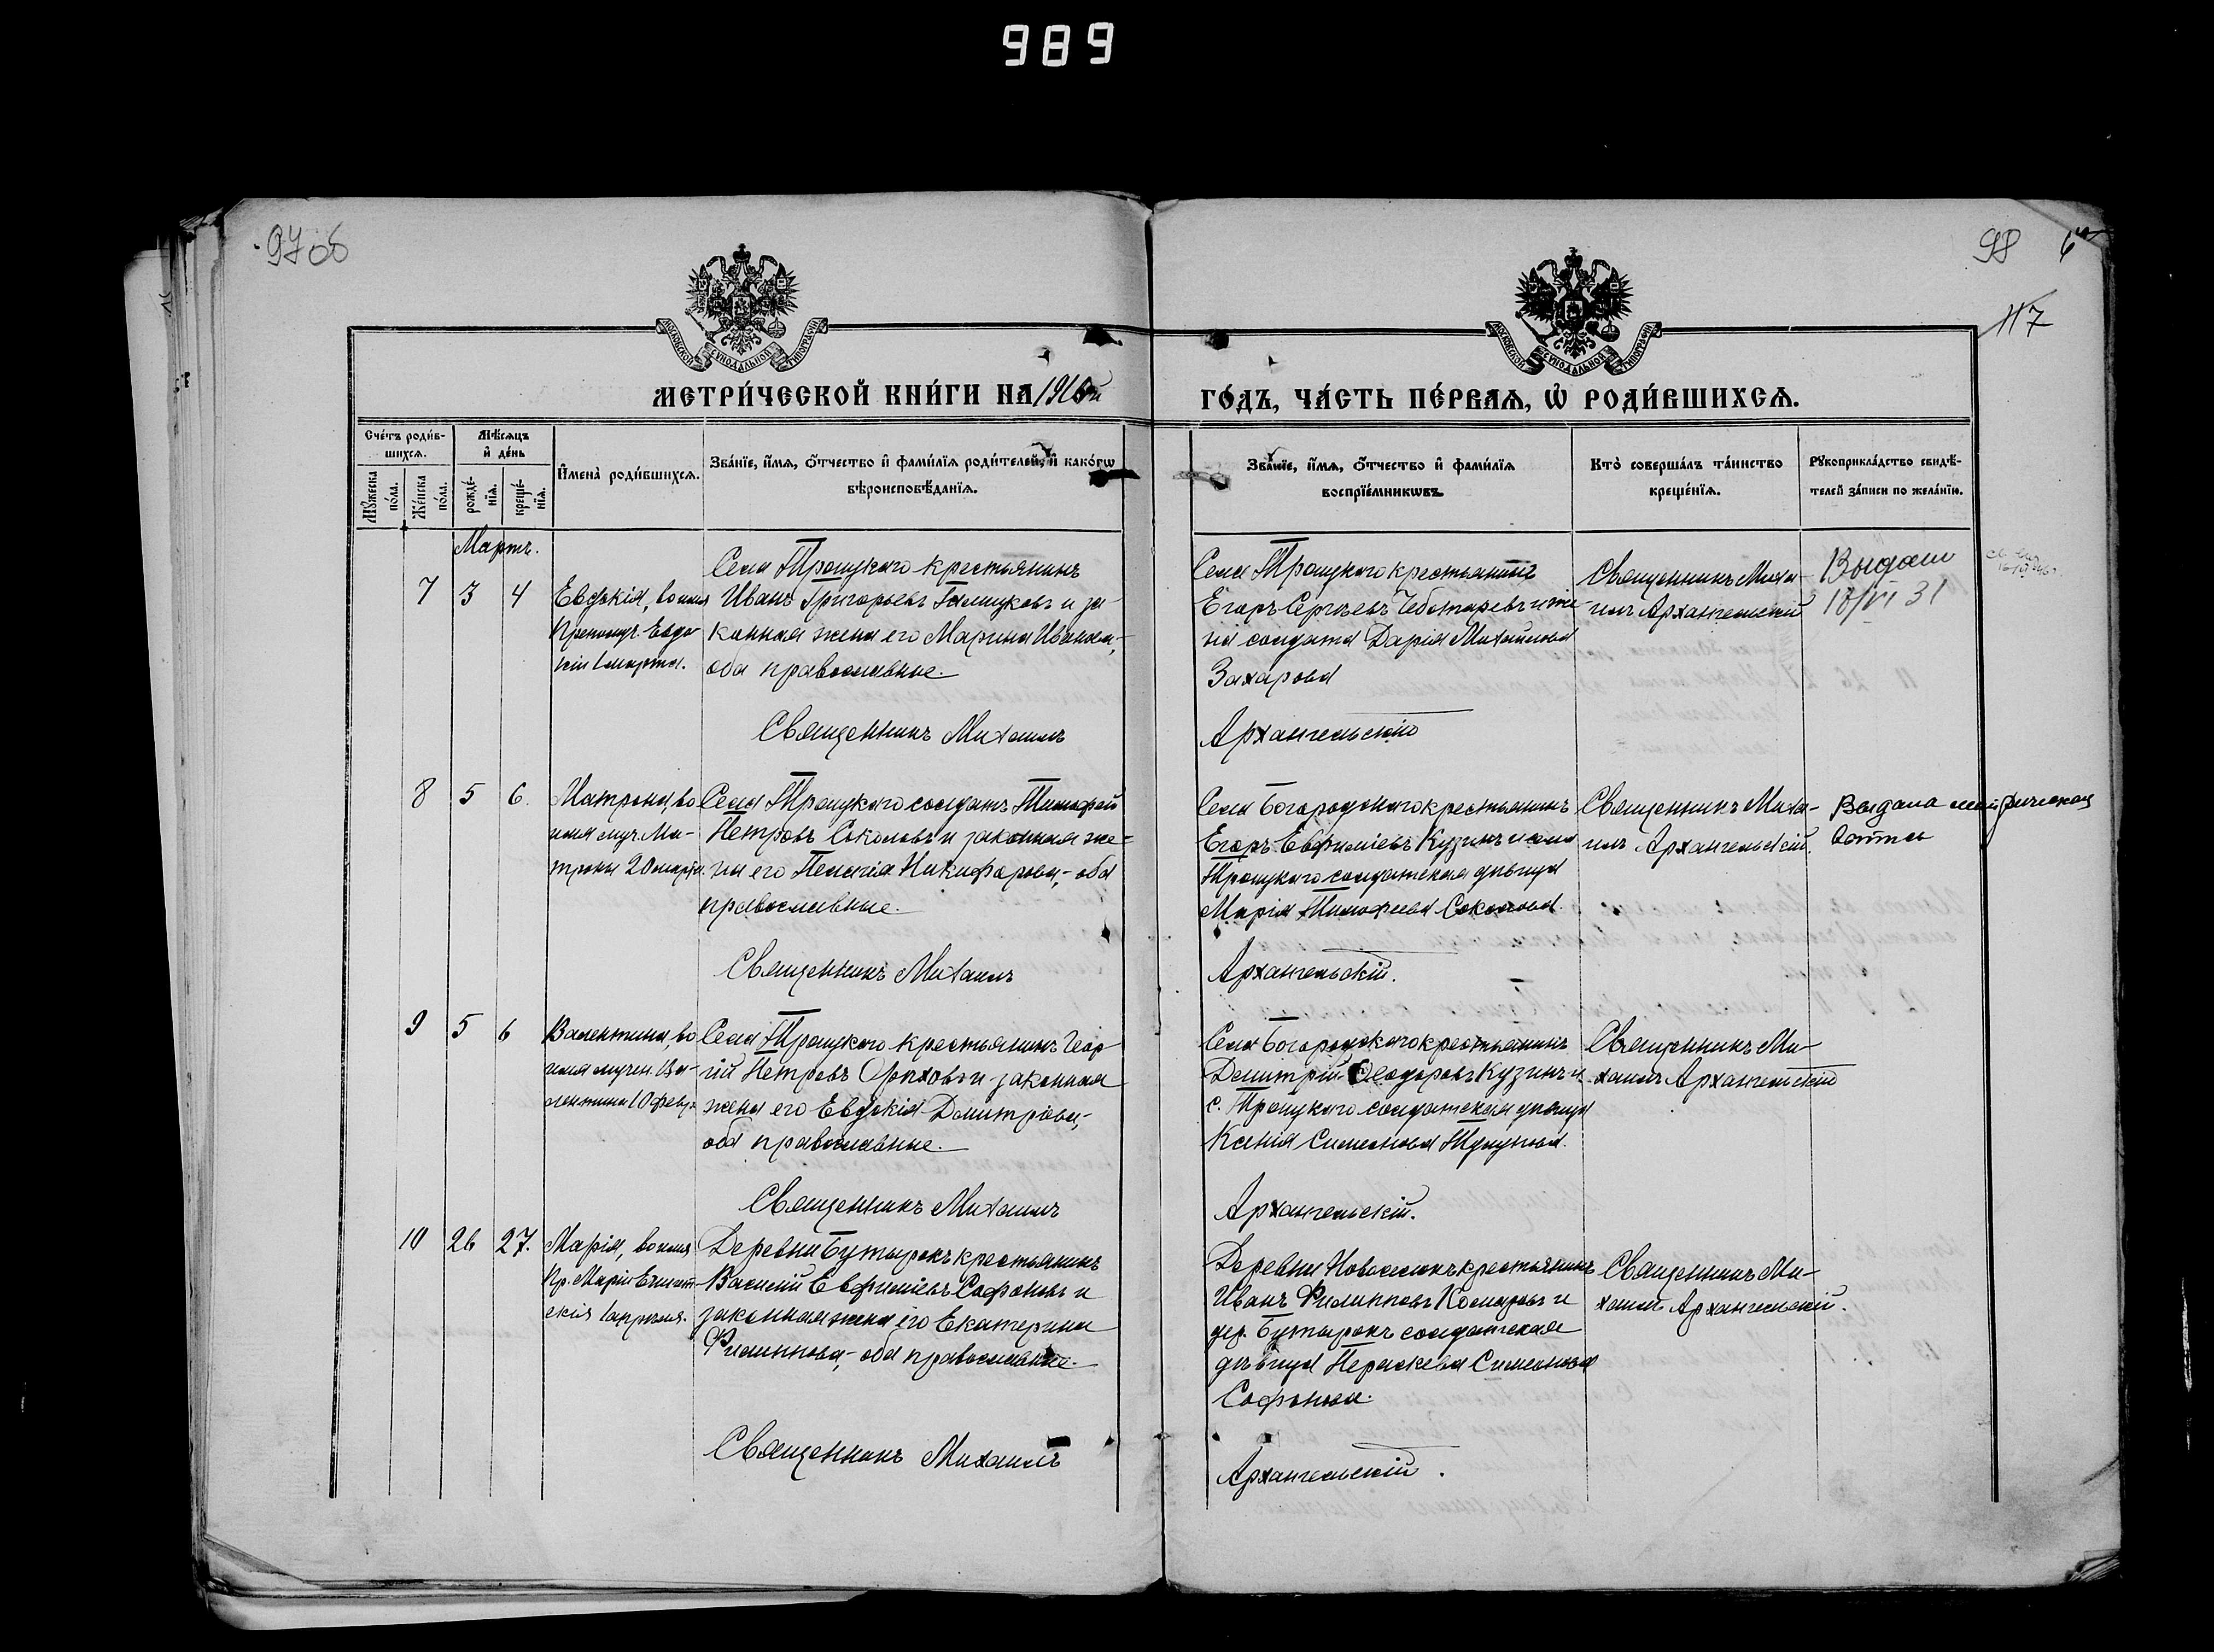 989
97об
98
117
МОСКОВСКОЙ СУНОДАЛЬНОЙ ТИПОГРАФІИ
МОСКОВСКОЙ СУНОДАЛЬНОЙ ТИПОГРАФІИ
МЕТРИ́ЧЕСКОЙ КНИ́ГИ НА 1916й
ГО́ДЪ, ЧА́СТЬ ПЕ́РВАѦ, Ѡ҆ РОДИ́ВШИХСѦ.
Сче́тъ роди́в-
шихсѧ.
Мꙋ́жеска по́ла.
Же́нска по́ла.
Мѣ́сѧцъ
и҆ де́нь
рожде́-
нїѧ.
креще́-
нїѧ.
И҆мена̀ роди́вшихсѧ.
Зва́нїе, и҆́мѧ, ѻ҆́тчество и҆ фами́лїѧ роди́телей, и҆ како́гѡ
вѣроисповѣ́данїѧ.
Зва́нїе, и҆́мѧ, ѻ҆́тчество и҆ фами́лїѧ
воспрїе́мникѡвъ.
Кто̀ соверша́лъ та́инство
креще́нїѧ.
Рꙋкоприкла́дство свидѣ́-
телей за́писи по жела́нїю.
Мартъ.
7 3 4
Евдокія, во имя
Препомуч. Евдо-
кіи 1 марта.
Села Троицкаго крестьянинъ
Иванъ Григорьевъ и за-
конная жена его Марина Иванова,-
оба православные.
Священникъ Михаилъ
Села Троицкаго крестьянинъ
Егоръ Сергѣевъ Чеботаревъ и же-
на солдата Дарія Михайлова
Захарова
Архангельскій
Священникъ Миха-
илъ Архангельскій
Выдано
18/VI 31
8 5 6.
Матрона, во
имя муч. Ма-
троны 20 марта.
Села Троицкаго солдатъ Тимофей
Петровъ Соколовъ и законная же-
на его Пелагія Никифорова,- оба
православные.
Священникъ Михаилъ
Села Богородскаго крестьянинъ
Егоръ Евфиміевъ Кузинъ и села
Троицкаго солдатская дѣвица
Марія Тимофеева Соколова.
Архангельскій.
Священникъ Миха-
илъ Архангельскій
Выдана
9 5 6
Валентина, во
имя мучен. Ва-
лентины 10 февр.
Села Троицкаго крестьянинъ Геор-
гій Петровъ Орѣховъ и законная
жена его Евдокія Димитріева,-
оба православные.
Священникъ Михаилъ
Села Богородскаго крестьянинъ
Димитрій Ѳеодоровъ Кузинъ и
с. Троицкаго солдатская дѣвица
Ксенія Симеонова
Архангельскій.
Священникъ Ми-
хаилъ Архангельскій
10 26 27.
Марія, во имя
Пр. Маріи Египет-
скія 1 апрѣля.
Деревни Бутырокъ крестьянинъ
Василій Евфиміевъ Софоновъ и
законная жена его Екатерина
Филиппова,- оба православные.
Священникъ Михаилъ
Деревни Новоселокъ крестьянинъ
Иванъ Филипповъ Комаровъ и
дер. Бутырокъ солдатская
дѣвица Параскева Симеонова
Софонова.
Архангельскій.
Священникъ Ми-
хаилъ Архангельскій.